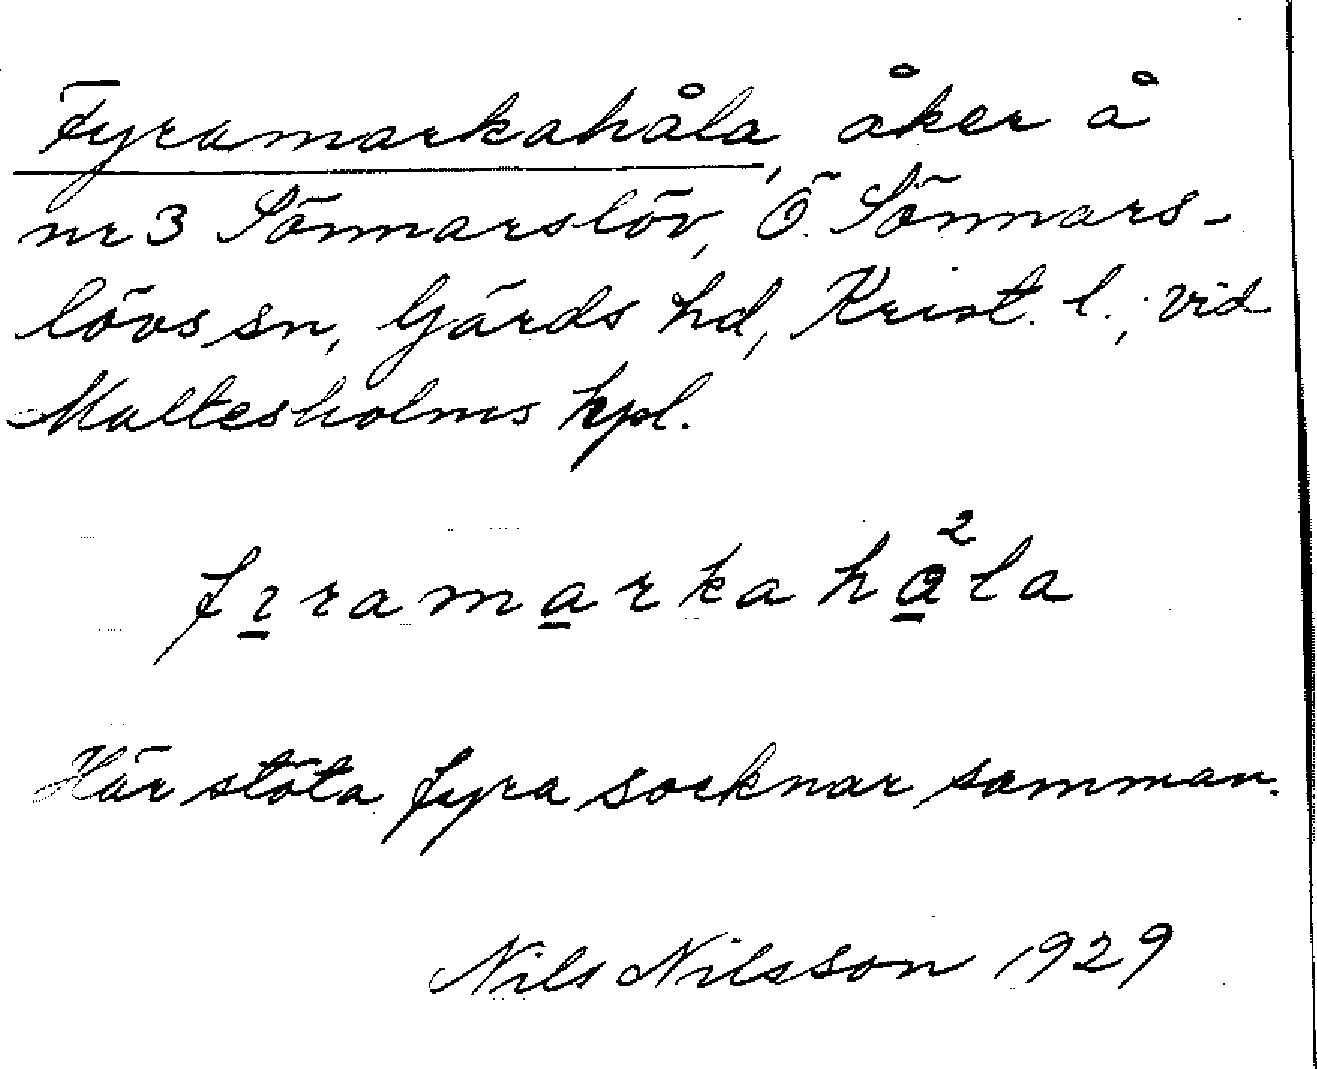 Fyramarkahåla, åker å
nr 3 Sönnarslöv, Ö. Sönnars-
lövs sn, Gärds hd, Krist. l.; vid
Maltesholms hpl.
fıramarkahå²la
Här stöta fyra socknar samman.
Nils Nilsson 1929